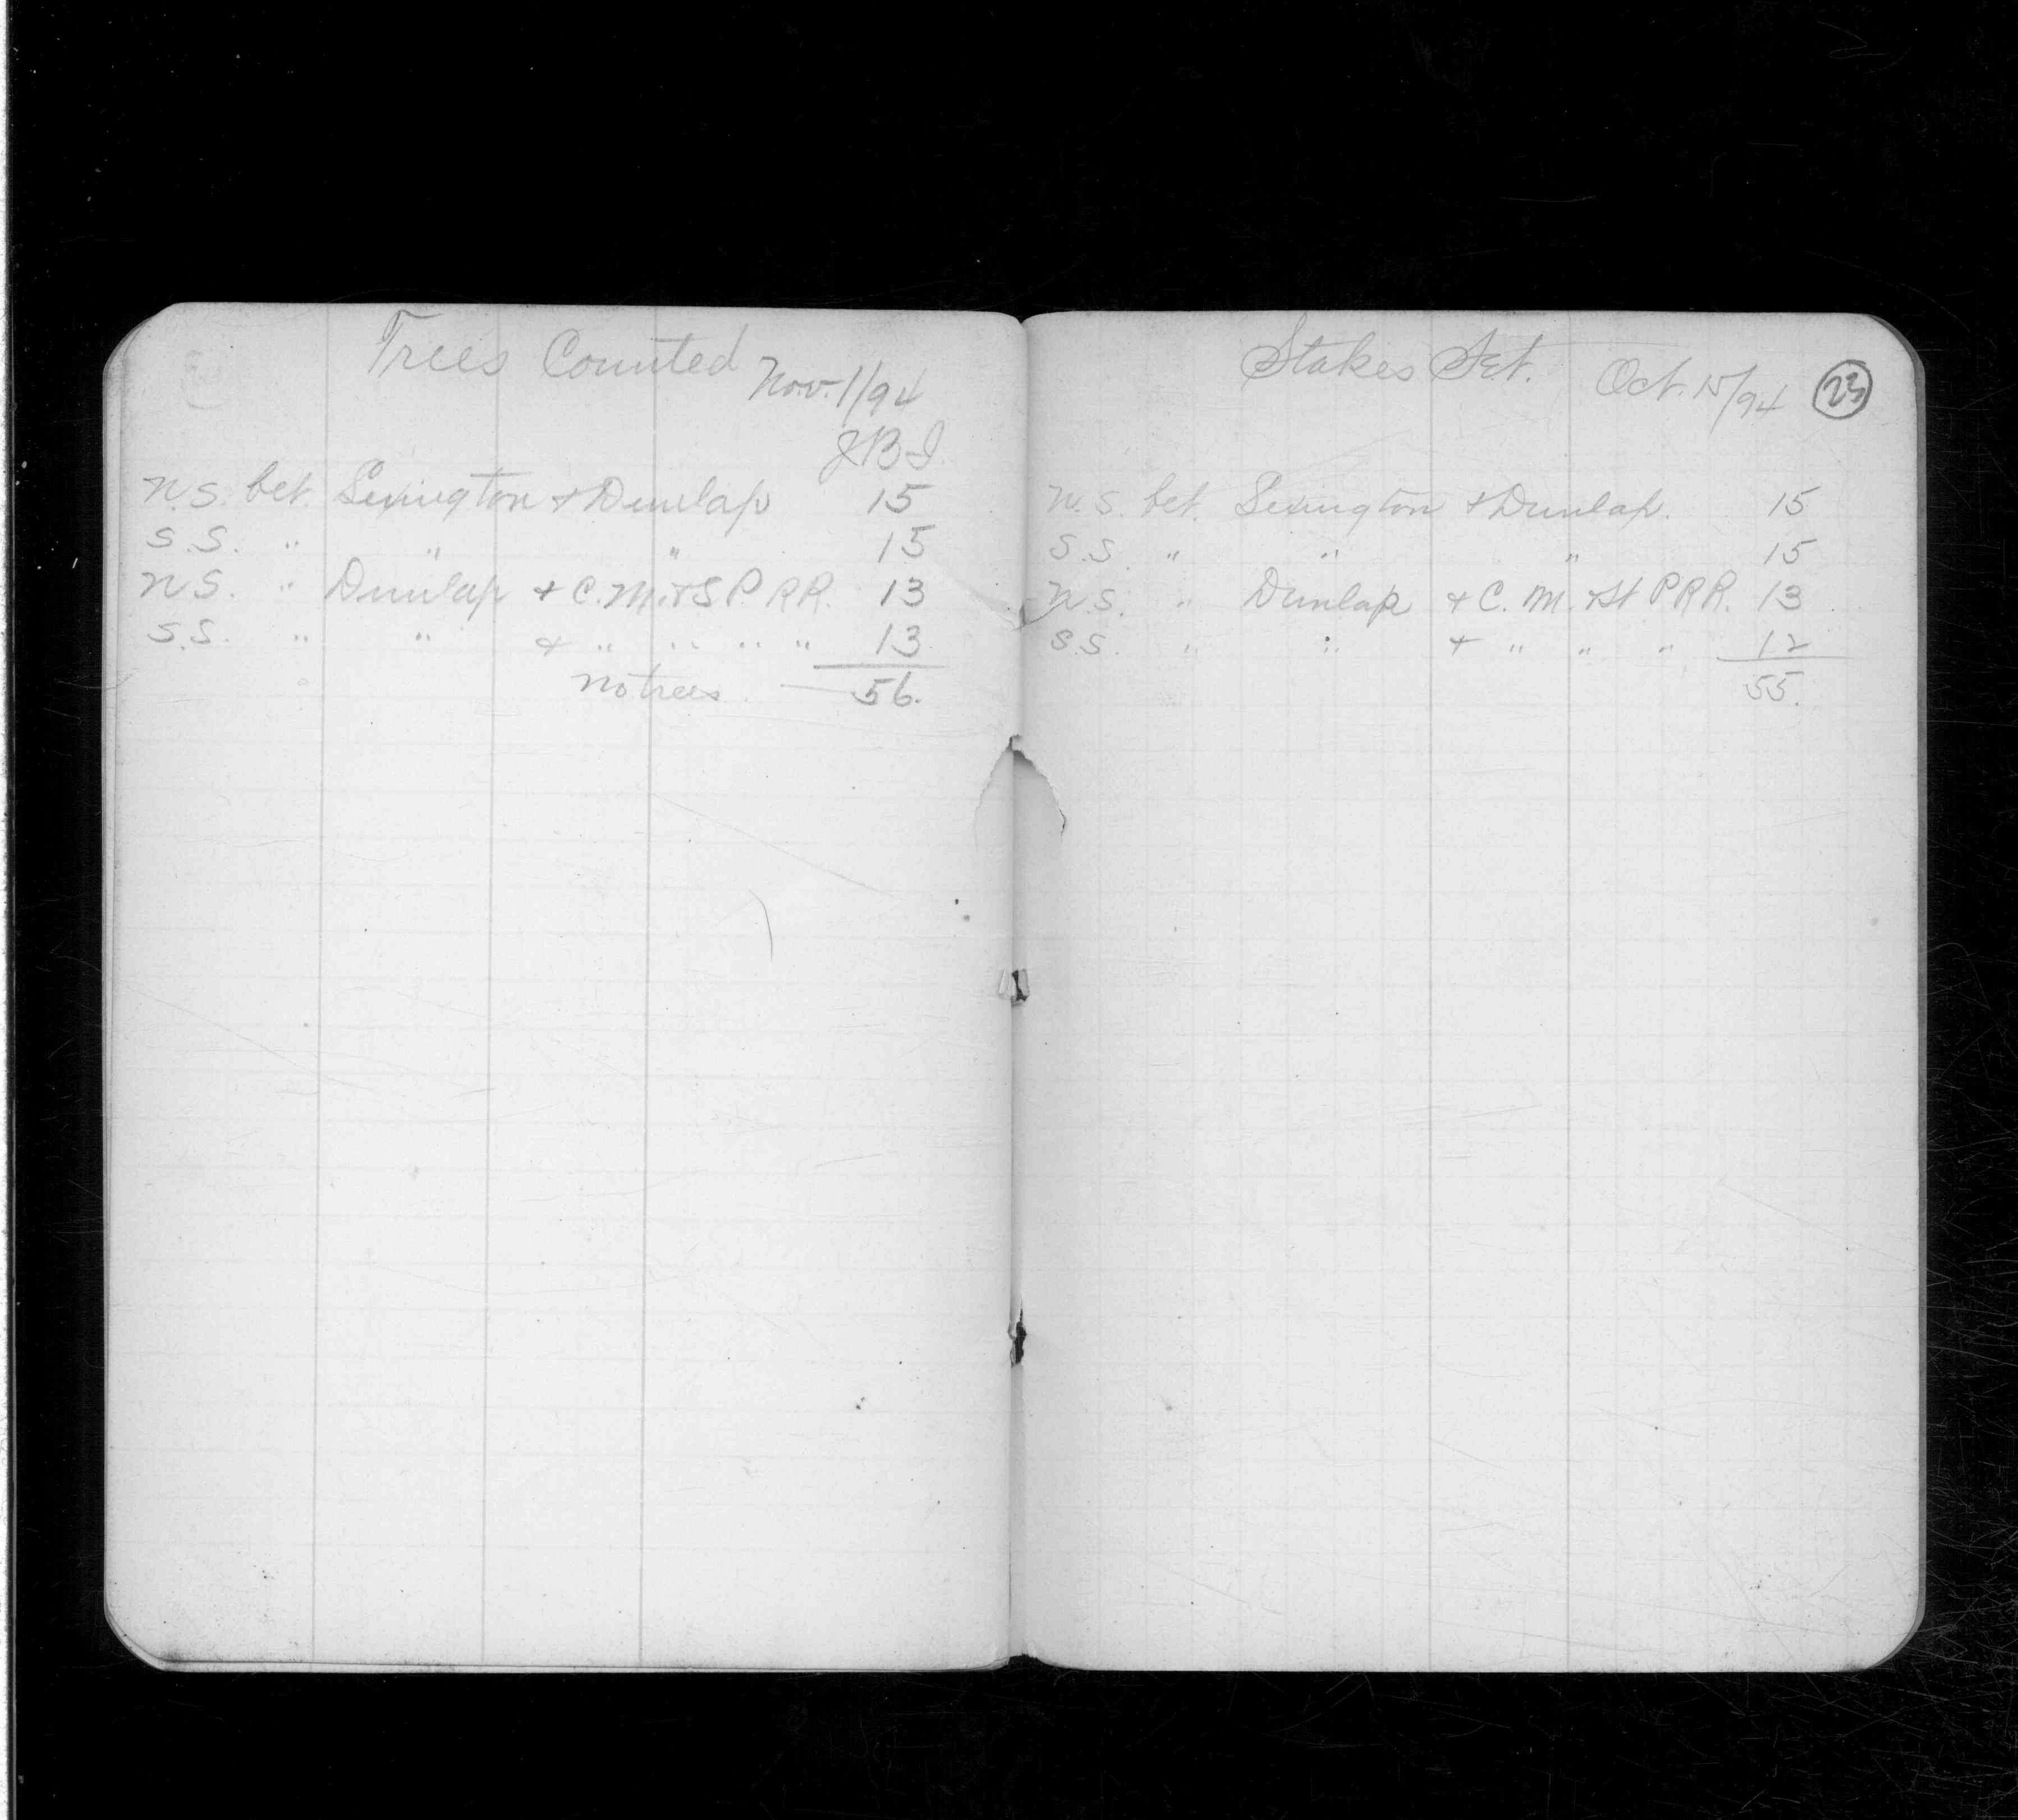 Trees Counted Nov. 1/94
JBI
N.S. bet. Lexington + Dunlap 15
S.S. " " " 15
N.S. " Dunlap + C. M. & S P. RR. 13
S.S. " " & " " " " 13
No trees 56.
Stakes Set. Oct. 15/94 23
N.S. bet. Lexington + Dunlap. 15
S.S. " " " 15
N.S. " Dunlap + C. M. & St P R R. 13
S.S. " " + " " " 12
55.